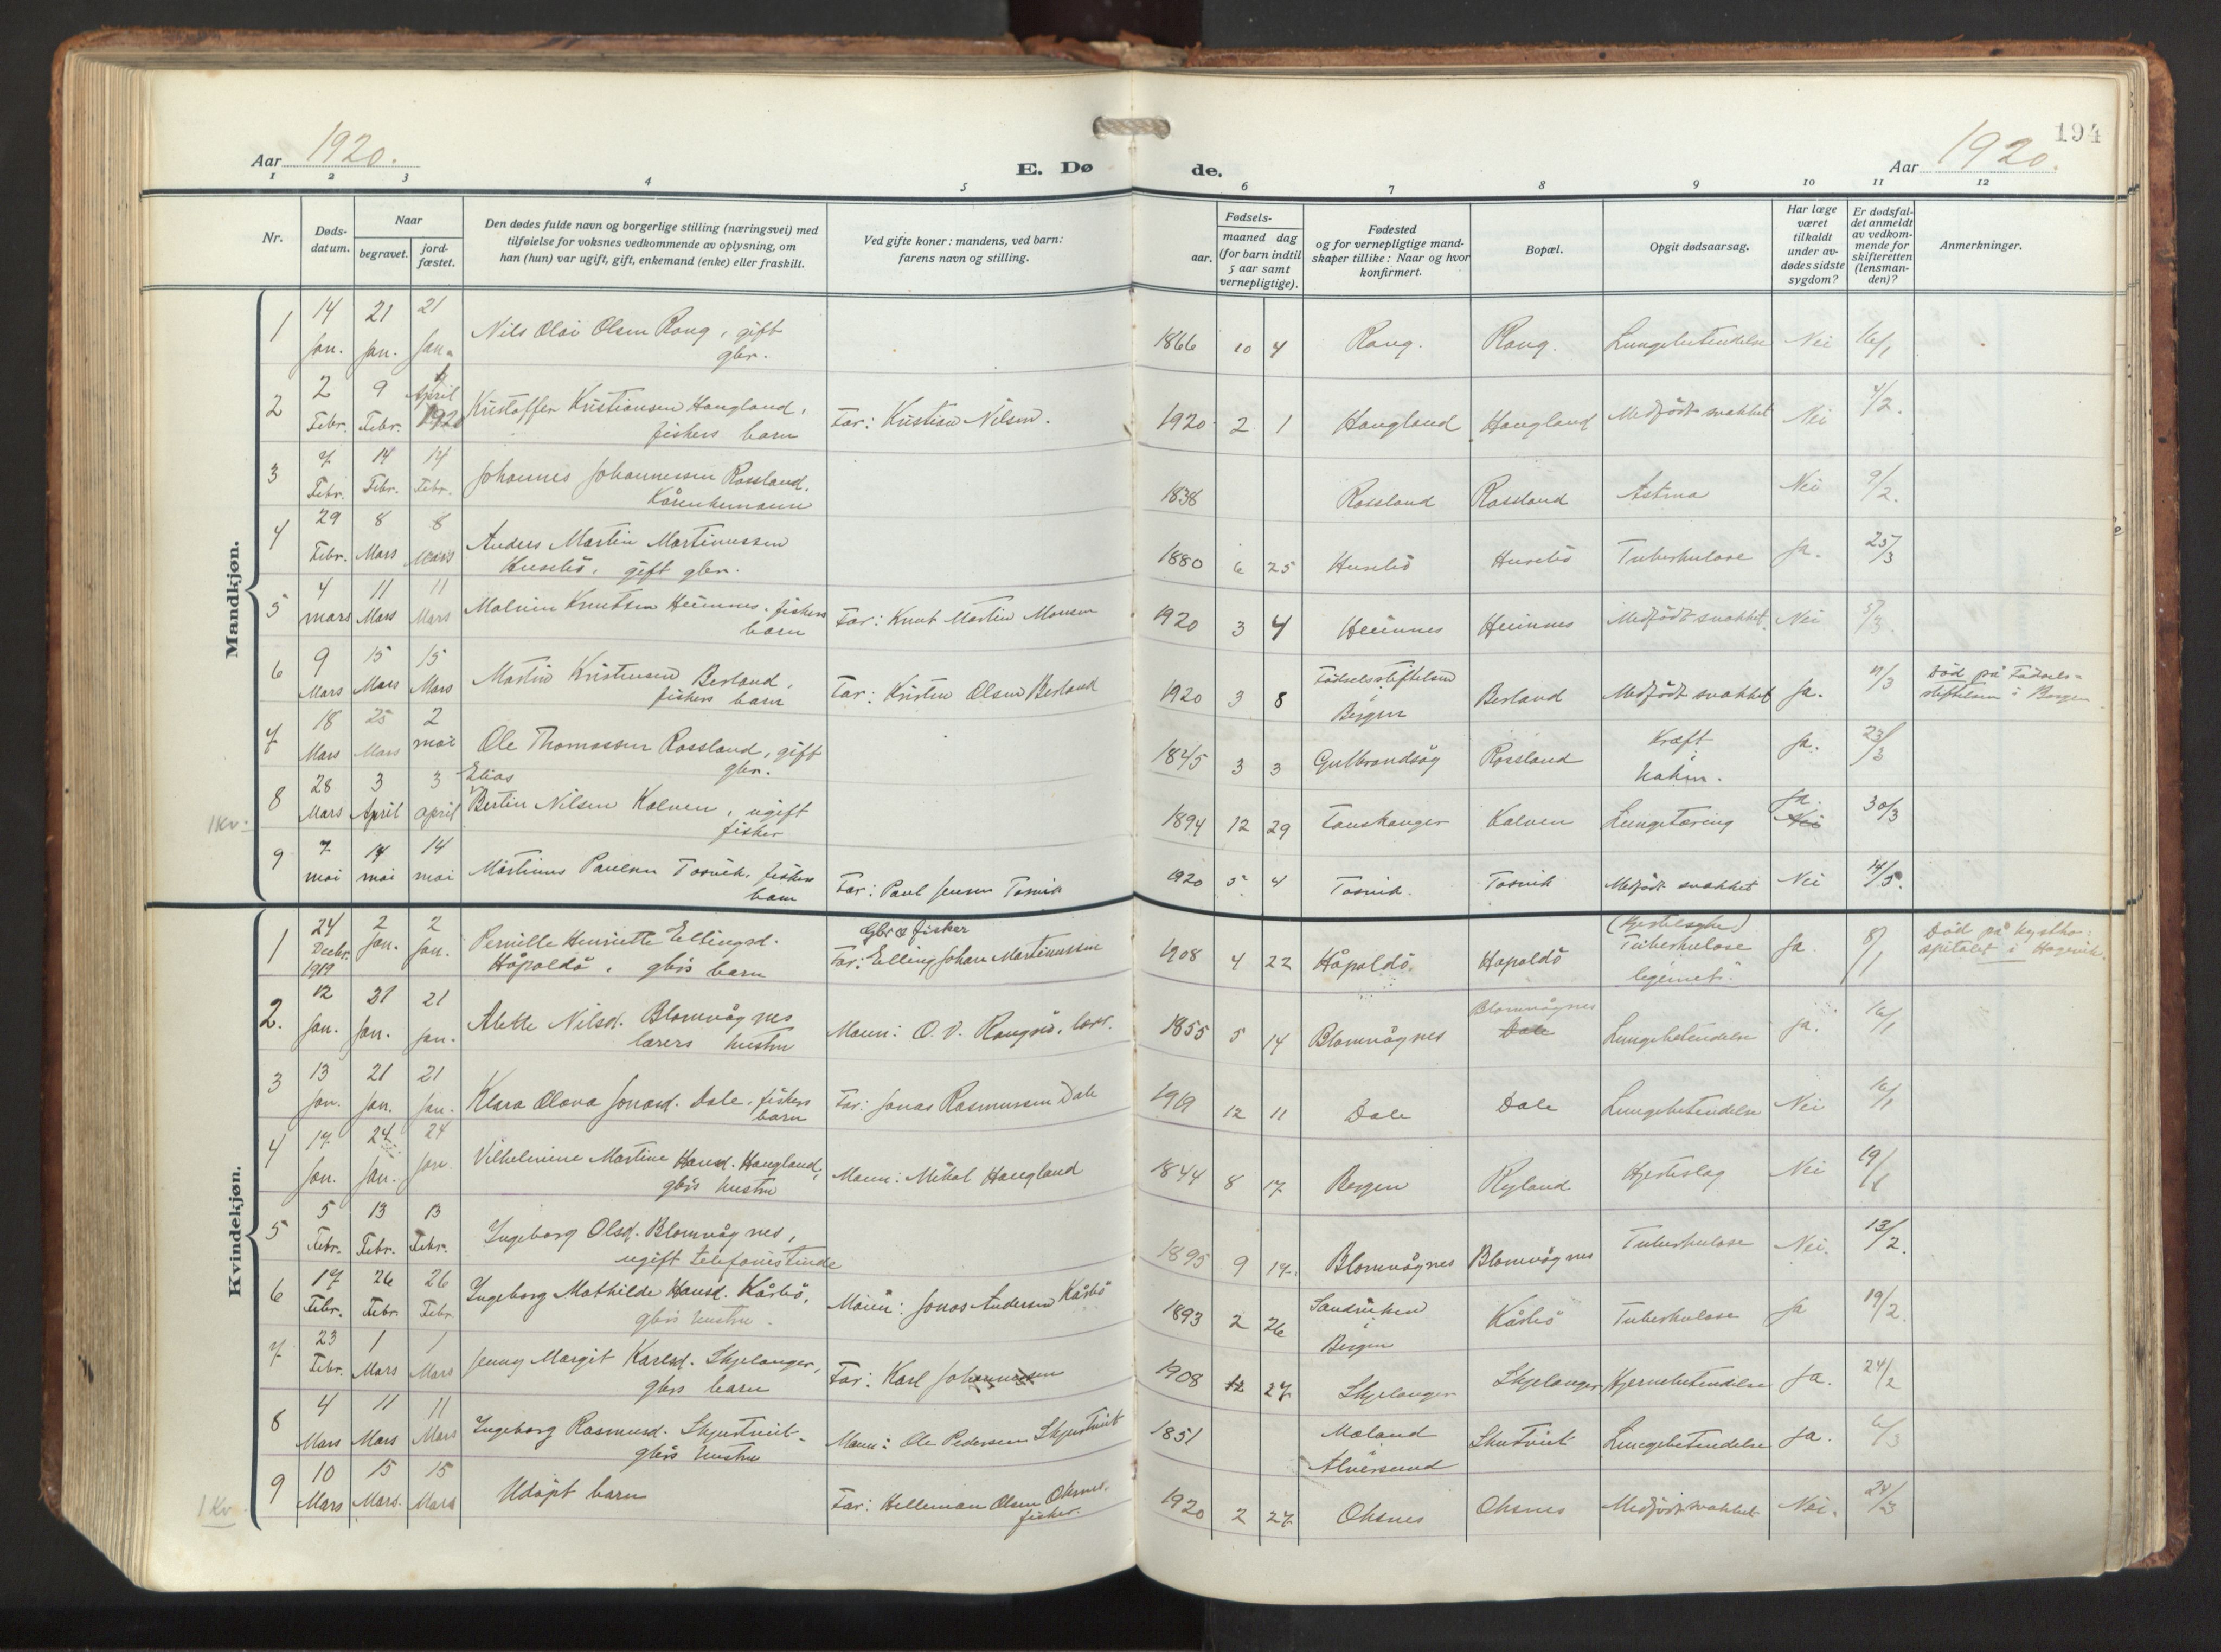 194
Aar 1920.
E. Dø de.
Aar 1920.
1 2 3 4 5 6 7 8 9 10 11 12
Nr.
Døds-
datum.
Naar
begravet.
jord-
fæstet.
Den dødes fulde navn og borgerlige stilling (næringsvei) med
tilføielse for voksnes vedkommende av oplysning, om
han (hun) var ugift, gift, enkemand (enke) eller fraskilt.
Ved gifte koner: mandens, ved barn:
farens navn og stilling.
Fødsels-
aar.
maaned dag
(for barn indtil
5 aar samt
vernepligtige).
Fødested
og for vernepligtige mand-
skaper tillike: Naar og hvor
konfirmert.
Bopæl.
Opgit dødsaarsag.
Har læge
været
tilkaldt
under av-
dødes sidste
sygdom?
Er dødsfal-
det anmeldt
av vedkom-
mende for
skifteretten
(lensman-
den)?
Anmerkninger.
Mandkjøn.
1 14 Jan. 21 Jan. 21 Jan. Nils Olai Olsen Rong, gift 1866 10 4 Rong. Rong. Lungebetendelse Nei 16/1
gbr.
2 2 Febr. 9 Febr. April 1920 Kristoffer Kristiansen Haugland, Far: Kristian Nilsen. 1920 2 1 Haugland Haugland Medfødt svakhet Nei 4/2.
fiskers barn
3 7 Febr. 14 Febr. 14 Febr. Johannes Johannessen Rossland. 1838 Rossland Rossland Astma Nei 9/2.
Kårenkemann
4 29 Febr. 8 Mars 8 Mars Anders Martin Martinussen 1880 6 25 Husebö Husebö Tuberkulose Ja. 25/3
Husebö, gift gbr.
5 4 mars 11 Mars 11 Mars Malvin Knutsen Heimnes, fiskers Far: Knut Martin Monsen 1920 3 4 Heimnes Heimnes Medfödt svakhet. Nei 5/3.
barn
6 9 Mars 15 Mars 15 Mars Martin Kristensen Berland, Far: Kristen Olsen Berland 1920 3 8 Födselsstiftelsen i Bergen Berland Medfödt svakhet Ja. 11/3 Död på Födsels-
fiskers barn stiftelsen i Bergen
7 18 Mars 25 Mars 2 mai Ole Thomassen Rossland, gift 1845 3 3 Gulbrandsög Rossland Kræft i haken. Ja. 23/3
gbr.
8 28 Mars 3 April 3 april Elias Bertin Nilsen Kalven, ugift 1894 12 29 Tauskanger Kalven Lungetæring Ja. Nei 30/3
fisker
1 Kv.
9 7 mai 14 mai 14 mai Martinus Paulsen Tosvik, fiskers Far: Paul Jensen Tosvik 1920 5 4 Tosvik. Tosvik Medfödt svakhet Nei 14/5.
barn
Kvindekjøn.
1 24 Decbr. 1919 2 Jan. 2 Jan. Pernille Henriette Ellingsd. Gbr & fisker 1908 4 22 Håpoldö. Hapoldö Tuberkulose Ja 8/1 Död på kystho-
Håpoldö, gbrs barn Far: Elling Johan Martinussen legemet. spitalet i Hagevik.
2. 12 Jan. 21 Jan. 21 Jan. Alette Nilsd. Blomvågnes Mann: O. V. Rongsö, lærer. 1855 5 14 Blomvågnes Blomvågnes Dale Lungebetendelse Ja. 16/1
lærers hustru
3 13 Jan. 21 Jan. 21 Jan. Klara Olava Jonasd. Dale, fiskers Far: Jonas Rasmussen Dale 1919 12 11 Dale Dale Lungebetendelse Nei 16/1
barn
4 17 Jan. 24 Jan. 24 Jan. Vilhelmine Martine Hansd. Haugland, Mann: Mikal Haugland 1844 8 17 Bergen Ryland Hjerteslag Nei 19/1
gbrs hustru
5 5 Febr. 13 Febr. 13 Febr. Ingeborg Olsd. Blomvågnes, 1895 9 17. Blomvågnes Blomvågnes Tuberkulose Nei. 13/2.
ugift telefonistinde
6 17 Febr. 26 Febr. 26 Febr. Ingeborg Mathilde Hansd. Kårbö, Mann: Jonas Andersen Kårbö 1893 2 26 Sandviken i Bergen Kårbö Tuberkulose Ja 19/2.
gbrs hustru.
7 23 Febr. 1 Mars 1 Mars Jenny Margit Karlsd. Skjelanger, Far: Karl Johannessen 1908 12 27 Skjelanger Skjelanger Hjernebetendelse Ja. 24/2
gbrs barn
8 4 Mars 11 Mars 11 Mars Ingeborg Rasmusd. Skjustveit. Mann: Ole Pedersen Skjustveit 1851 Moland i Alversund Skutveit Lungebetendelse Ja. 6/3
gbrs hustru
9 10 Mars 15 Mars. 15 Mars Udöpt barn Far: Helleman Olsen Oksnes. 1920 2 27 Oksnes Oksnes Medfödt svakhet Nei. 24/3
fisker.
1 Kv